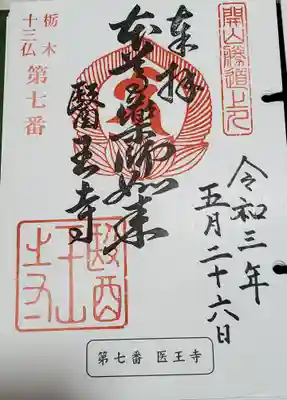 開山勝道上人
奉拝
本尊薬師如来
醫王寺
栃木
十三仏
第七番
令和三年
五月二十六日
第七番 医王寺